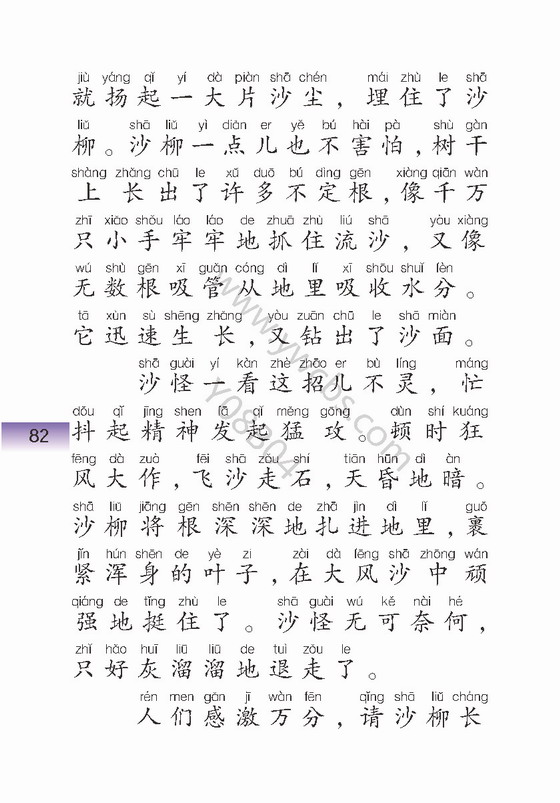 jiù yáng qǐ yí dà piàn shā chén mái zhù le shā
就扬起一大片沙尘，埋住了沙
liǔ shā liǔ yì diǎn er yě bú hài pà shù gàn
柳。沙柳一点儿也不害怕，树干
shàng zhǎng chū le xǔ duō bú dìng gēn xiàng qiān wàn
上长出了许多不定根，像千万
zhī xiǎo shǒu láo láo de zhuā zhù liú shā yòu xiàng
只小手牢牢地抓住流沙，又像
wú shù gēn xī guǎn cóng dì lǐ xī shōu shuǐ fèn
无数根吸管从地里吸收水分。
tā xùn sù shēng zhǎng yòu zuān chū le shā miàn
它迅速生长，又钻出了沙面。
shā guài yí kàn zhè zhāo er bù líng máng
沙怪一看这招儿不灵，忙
dǒu qǐ jīng shen fā qǐ měng gōng dùn shí kuáng
抖起精神发起猛攻。顿时狂
fēng dà zuò fēi shā zǒu shí tiān hūn dì àn
风大作，飞沙走石，天昏地暗。
shā liǔ jiāng gēn shēn shēn de zhā jìn dì lǐ guǒ
沙柳将根深深地扎进地里，裹
jǐn hún shēn de yè zi zài dà fēng shā zhōng wán
紧浑身的叶子，在大风沙中顽
qiáng de tǐng zhù le shā guài wú kě nài hé
强地挺住了。沙怪无可奈何，
zhǐ hǎo huī liū liū de tuì zǒu le
只好灰溜溜地退走了。
rén men gǎn jī wàn fēn qǐng shā liǔ cháng
人们感激万分，请沙柳长
82
www.ywcbs.com